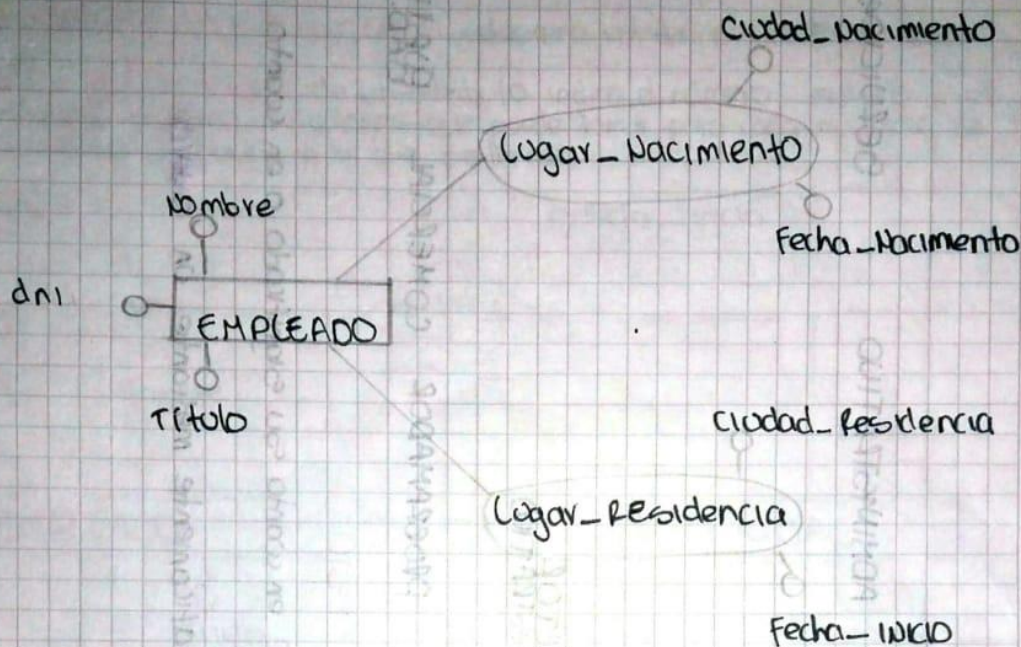 Ciudad_Nacimiento
Lugar_Nacimiento
Nombre
Fecha_Nacimento
dni
EMPLEADO
Título
Ciudad_Residencia
Lugar_Residencia
Fecha_INICIO